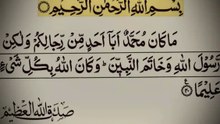 بِسْمِ اللّٰهِ الرَّحْمٰنِ الرَّحِيْمِ
مَا كَانَ مُحَمَّدٌ اَبَآ اَحَدٍ مِّنْ رِّجَالِكُمْ وَلٰكِنْ
رَّسُوْلَ اللّٰهِ وَخَاتَمَ النَّبِيّٖنَ ؕ وَكَانَ اللّٰهُ بِكُلِّ شَيْءٍ
عَلِيْمًا
صدق اللّٰه العظیم